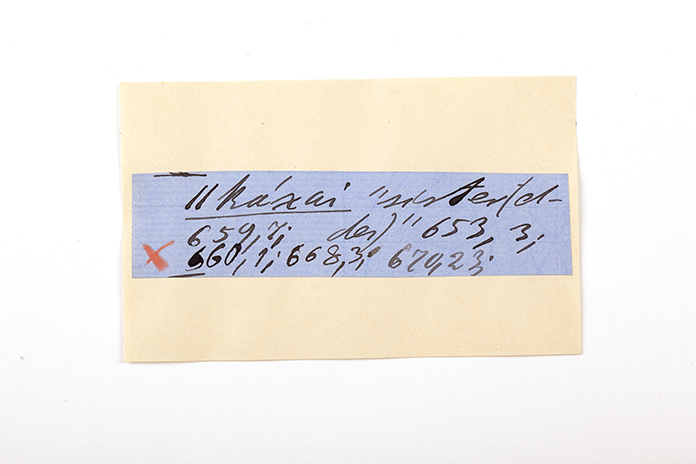 11 kázai "nester(d-
659,7; der)" 653, 3;
660,1; 668,3; 670,23;